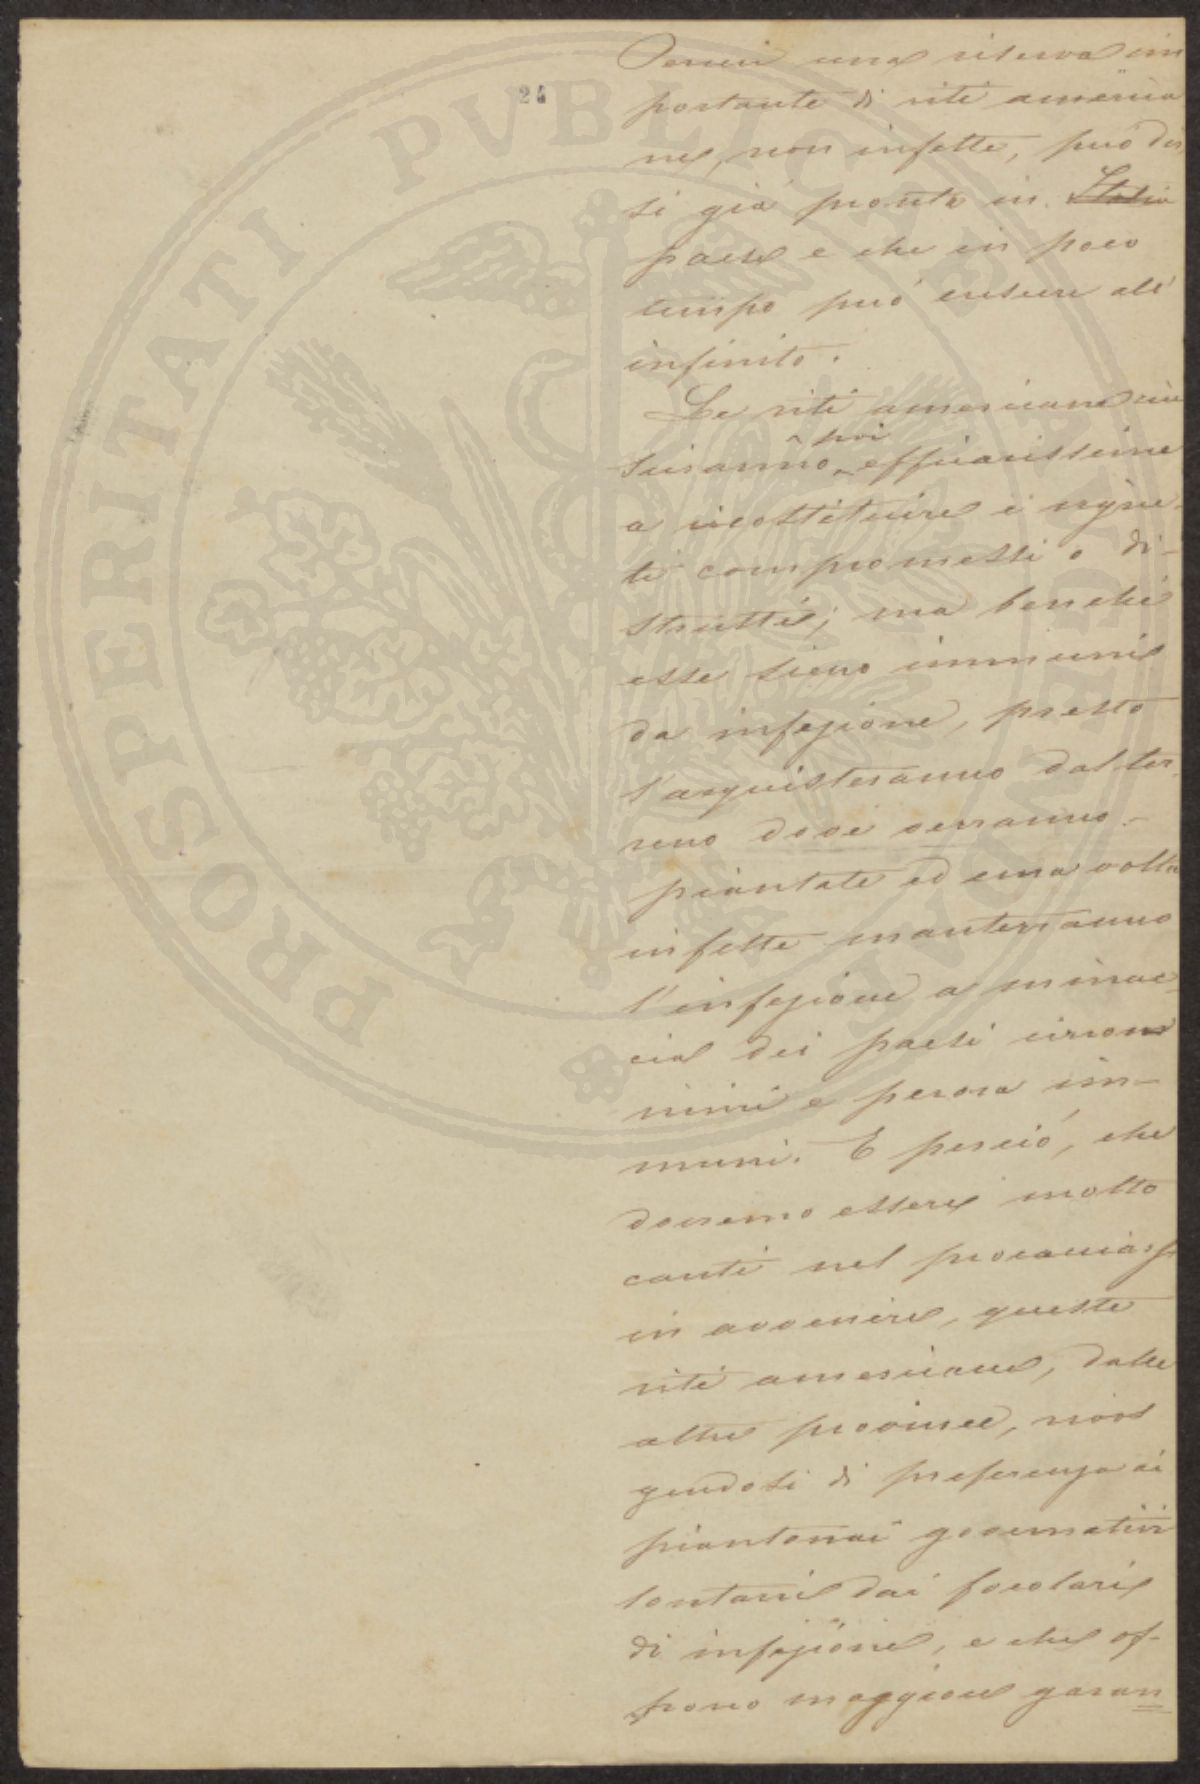 24
PROSPERITATI PVBLICAE AVGENDAE
una riserva im
portante di viti america
ne, non infette, può dir
si già pronta in Italia
paese e che in poco
tempo può crescere all'
infinito.
Le viti americane riu
sciranno poi efficacissime
a ricostituire i vigne
ti compromessi o di-
strutti; ma benché
esse sieno immuni
da infezione, presto
l'acquisteranno dal ter
reno dove verranno
piantate ed una volta
infette manterranno
l'infezione a minac
cia dei paesi circon
vicini e perora im-
muni. E perciò, che
dovremo essere molto
cauti nel procacciarsi
in avvenire, queste
viti americane, dalle
altre provincie, rivol
gendosi di preferenza ai
piantonai governativi
lontani dai focolari
di infezione, e che of-
frono maggiore garan